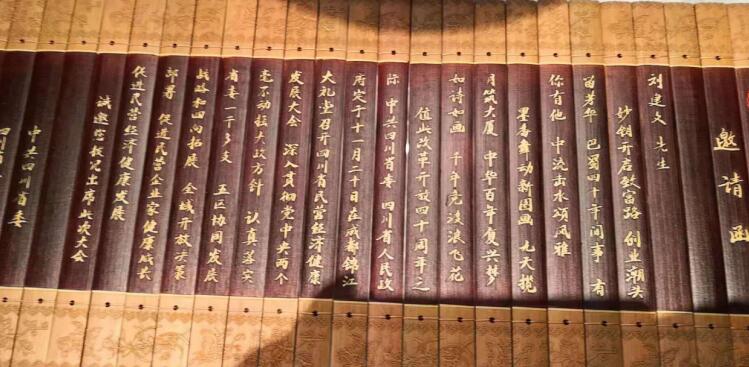 邀请函
刘建文 先生
妙钥开启致富路 创业潮头
留芳华 巴蜀四十年间事 有
你有他 中流击水颂风雅
墨香舞动新图画 九天揽
月筑大厦 中华百年复兴梦
如诗如画 千年 浪飞花
值此改革开放四十周年之
际 中共四川省委 四川省人民政
府定于十一月二十日在成都锦江
大礼堂召开四川省民营经济健康
发展大会 深入贯彻党中央两个
毫不动摇大政方针 认真落实
省委一干多支 五区协同发展
战略和四向拓展 全域开放决策
部署 促进民营企业家健康成长
促进民营经济健康发展
诚邀您拨冗出席此次大会
中共四川省委
四川省